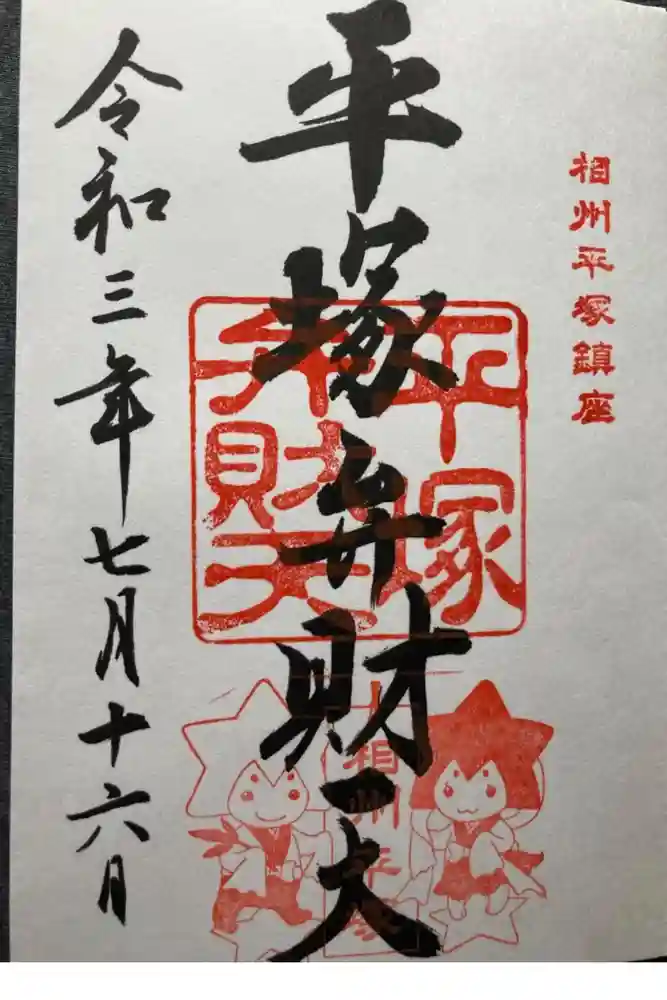 相州平塚鎮座
平塚弁財天
平塚
弁財天
相州平塚
令和三年七月十六月